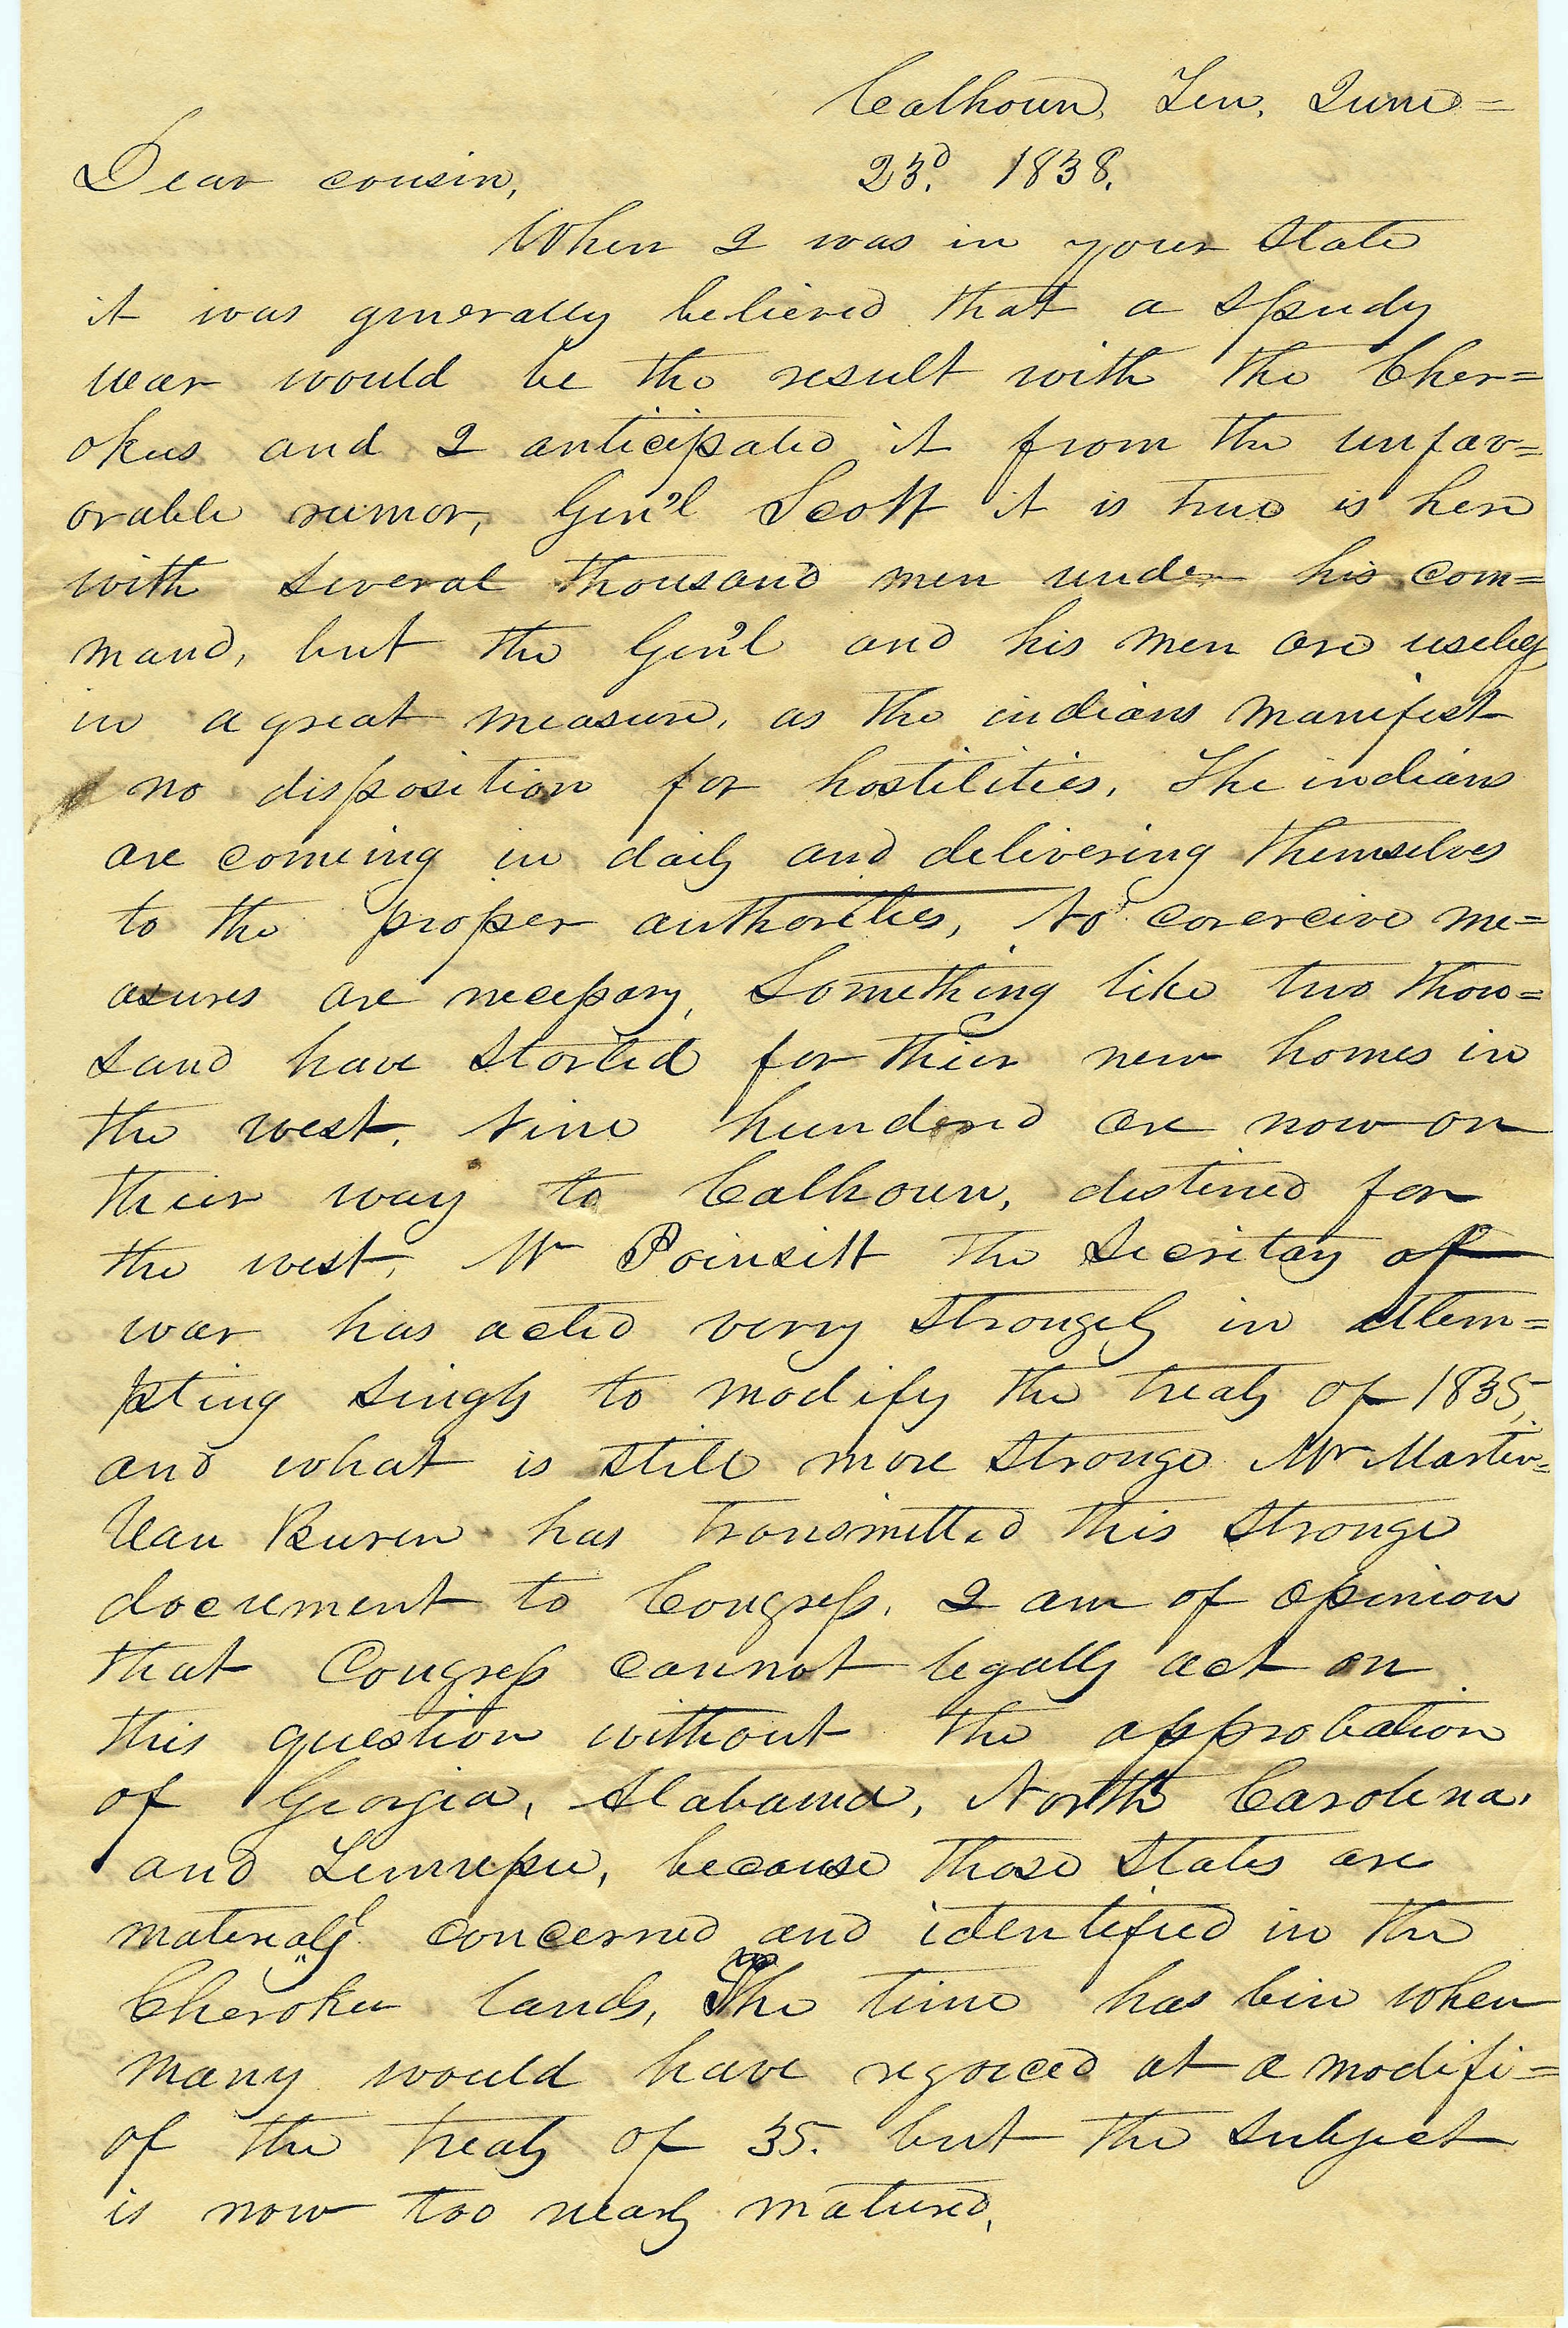 Calhoun, Ten, June=
Dear cousin, 23d. 1838.
When I was in your State
it was generally believed that a speedy
war would be the result with the Cher=
okees and I anticipated it from the unfav=
orable rumor, Gen'l Scott it is true is here
with several thousand men under his com=
mand, but the Gen'l and his men are useless
in a great measure, as the indians manifest
no disposition for hostilities. The indians
are comeing in daily and delivering themselves
to the proper authorities, No corercive me=
asures are necessary, Something like two thou=
sand have started for their new homes in
the west. Nine hundred are now on
their way to Calhoun, destined for
the west, Mr Poinsett the Secretary of
war has acted verry strangely in attem=
pting singly to modify the treaty of 1835,
and what is still more strange Mr Martin=
Van Buren has transmitted this strange
document to Congress. I am of opinion
that Congress cannot legally act on
this question without the approbation
of Georgia, Alabama, North Carolina,
and Tennessee, because those States are
materially concerned and identified in the
Cherokee lands, The time has bin when
many would have rejoiced at a modifi=
of the treaty of 35. but the subject
is now too nearly matured,